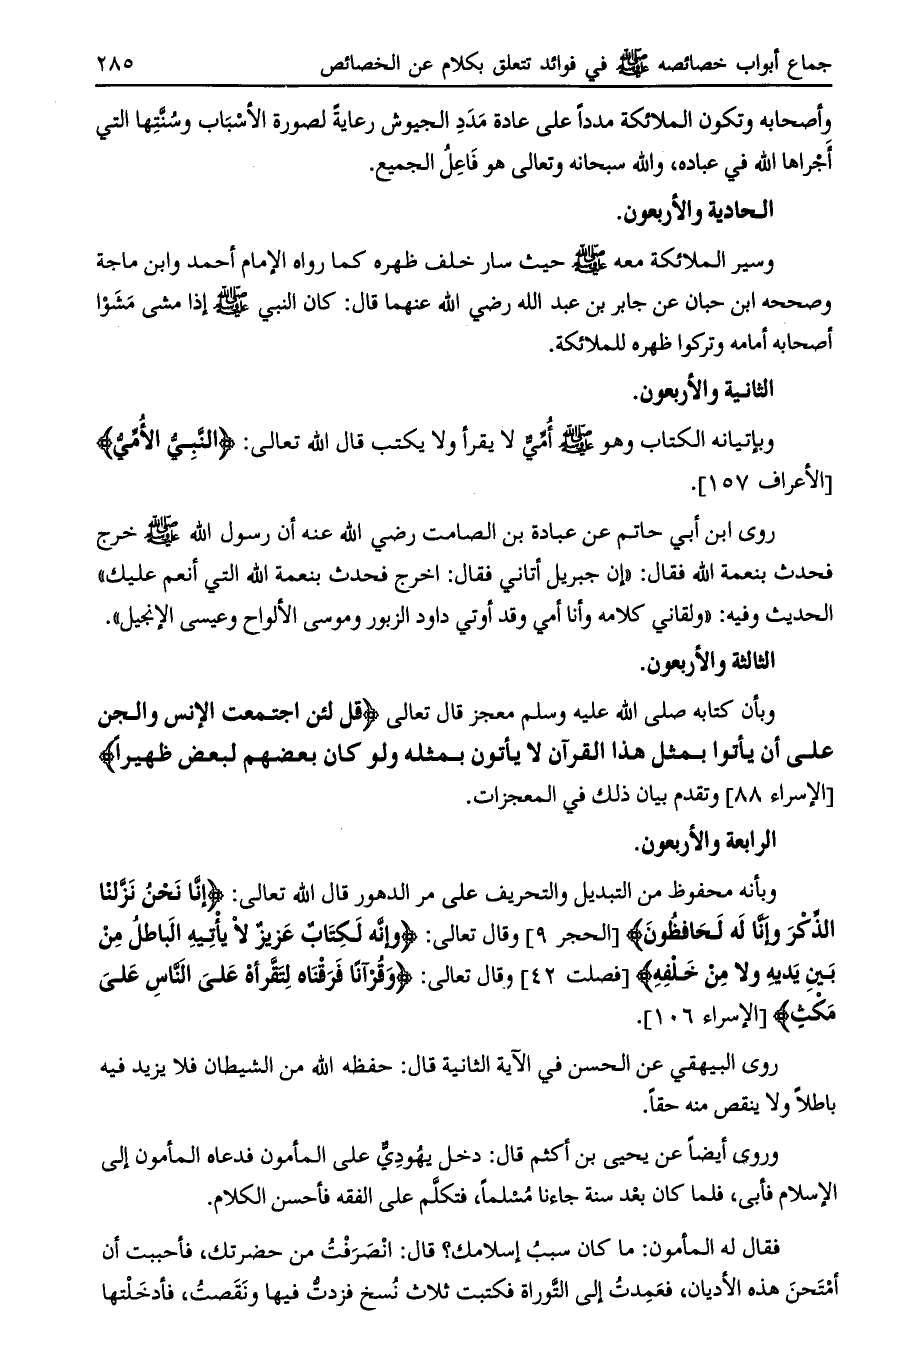 جماع أبواب خصائصه ﷺ في فوائد تتعلق بكلام عن الخصائص ٢٨٥
وأصحابه وتكون الملائكة مدداً على عادة مَدَدِ الجيوش رعايةً لصورة الأسْبَاب وسُنَّتِها التي
أَجْراها الله في عباده، والله سبحانه وتعالى هو فَاعِلُ الجميع.
الحادية والأربعون.
وسير الملائكة معه ﷺ حيث سار خلف ظهره كما رواه الإمام أحمد وابن ماجة
وصححه ابن حبان عن جابر بن عبد الله رضي الله عنهما قال: كان النبي ﷺ إذا مشى مَشَوْا
أصحابه أمامه وتركوا ظهره للملائكة.
الثانية والأربعون.
وبإتيانه الكتاب وهو ﷺ أُمِّيٌّ لا يقرأ ولا يكتب قال الله تعالى: ﴿النَّبِيُّ الأُمِّيُّ﴾
[الأعراف ١٥٧].
روى ابن أبي حاتم عن عبادة بن الصامت رضي الله عنه أن رسول الله ﷺ خرج
فحدث بنعمة الله فقال: «إن جبريل أتاني فقال: اخرج فحدث بنعمة الله التي أنعم عليك»
الحديث وفيه: «ولقاني كلامه وأنا أمي وقد أوتي داود الزبور وموسى الألواح وعيسى الإنجيل».
الثالثة والأربعون.
وبأن كتابه صلى الله عليه وسلم معجز قال تعالى ﴿قل لئن اجتمعت الإنس والجن
على أن يأتوا بمثل هذا القرآن لا يأتون بمثله ولو كان بعضهم لبعض ظهيرا﴾
[الإسراء ٨٨] وتقدم بيان ذلك في المعجزات.
الرابعة والأربعون.
وبأنه محفوظ من التبديل والتحريف على مر الدهور قال الله تعالى: ﴿إنَّا نَحْنُ نَزَّلنْا
الذِّكْرَ وإنَّا لَه لَحَافظُونَ﴾ [الحجر ٩] وقال تعالى: ﴿وإنَّه لَكِتَابٌ عَزيزٌ لاْ يأْتيهِ الَباطلُ مِنْ
بَينِ يَديهِ ولا مِنْ خَلْفِهِ﴾ [فصلت ٤٢] وقال تعالى: ﴿وَقُرْآنًا فَرَقْنَاه لِتَقَّرأهْ عَلىَ الَنَّاسِ عَلىَ
مَكْثٍ﴾ [الإسراء ١٠٦].
روى البيهقي عن الحسن في الآية الثانية قال: حفظه الله من الشيطان فلا يزيد فيه
باطلاً ولا ينقص منه حقاً.
وروى أيضاً عن يحيى بن أكثم قال: دخل يهُودِيٌّ على المأمون فدعاه المأمون إلى
الإسلام فأبى، فلما كان بعْد سنة جاءنا مُسْلماً، فتكلَّم على الفقه فأحسن الكلام.
فقال له المأمون: ما كان سببُ إسلامك؟ قال: انْصَرَفْتُ من حضرتك، فأحببت أن
أمْتَحنَ هذه الأديان، فعَمِدتُ إلى التَّوراة فكتبت ثلاث نُسخ فزدتُّ فيها ونَقَصتُ، فأدخَلْتها